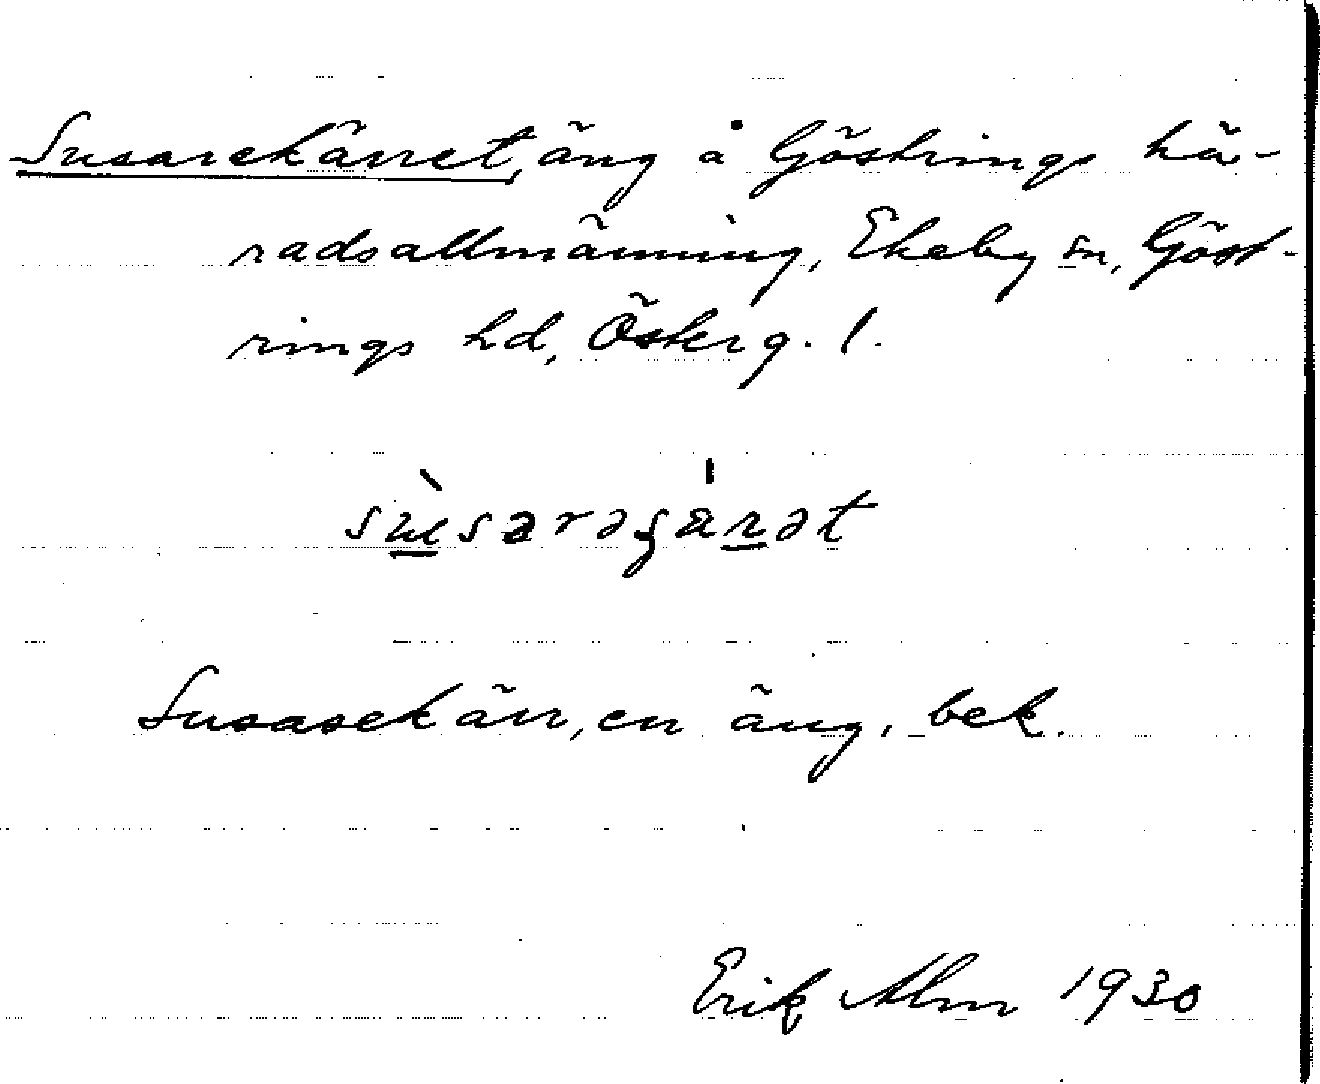 Susarekärret, äng å Göstrings hä-
radsallmänning, Ekeby sn, Göst-
rings hd, Österg. l.
Susasekärr, en äng, bek.
Erik Alm 1930